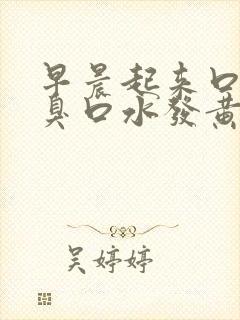 早晨起来口
臭口水發黄
吴婷婷